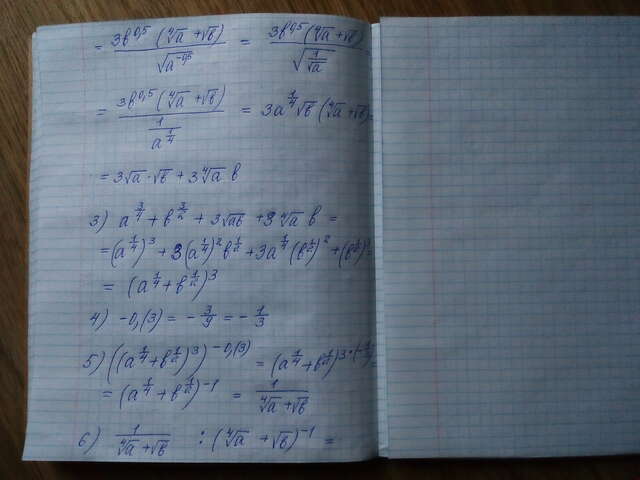 = 3в^0,5 (⁴√a + √в) / √a^-0,5 = 3в^0,5 (⁴√a + √в) / √(1/√a)
= 3в^0,5 (⁴√a + √в) / (1/a^(1/4)) = 3a^(1/4) √в (⁴√a + √в) =
= 3√a · √в + 3 ⁴√a в
3) a^(3/4) + в^(3/2) + 3√aв + 3 ⁴√a в =
= (a^(1/4))^3 + 3(a^(1/4))^2 в^(1/2) + 3a^(1/4) (в^(1/2))^2 + (в^(1/2))^3 =
= (a^(1/4) + в^(1/2))^3
4) -0,(3) = -3/9 = -1/3
5) ((a^(1/4) + в^(1/2))^3)^-0,(3) = (a^(1/4) + в^(1/2))^3·(-1/3) =
= (a^(1/4) + в^(1/2))^-1 = 1 / (⁴√a + √в)
6) 1 / (⁴√a + √в) : (⁴√a + √в)^-1 =